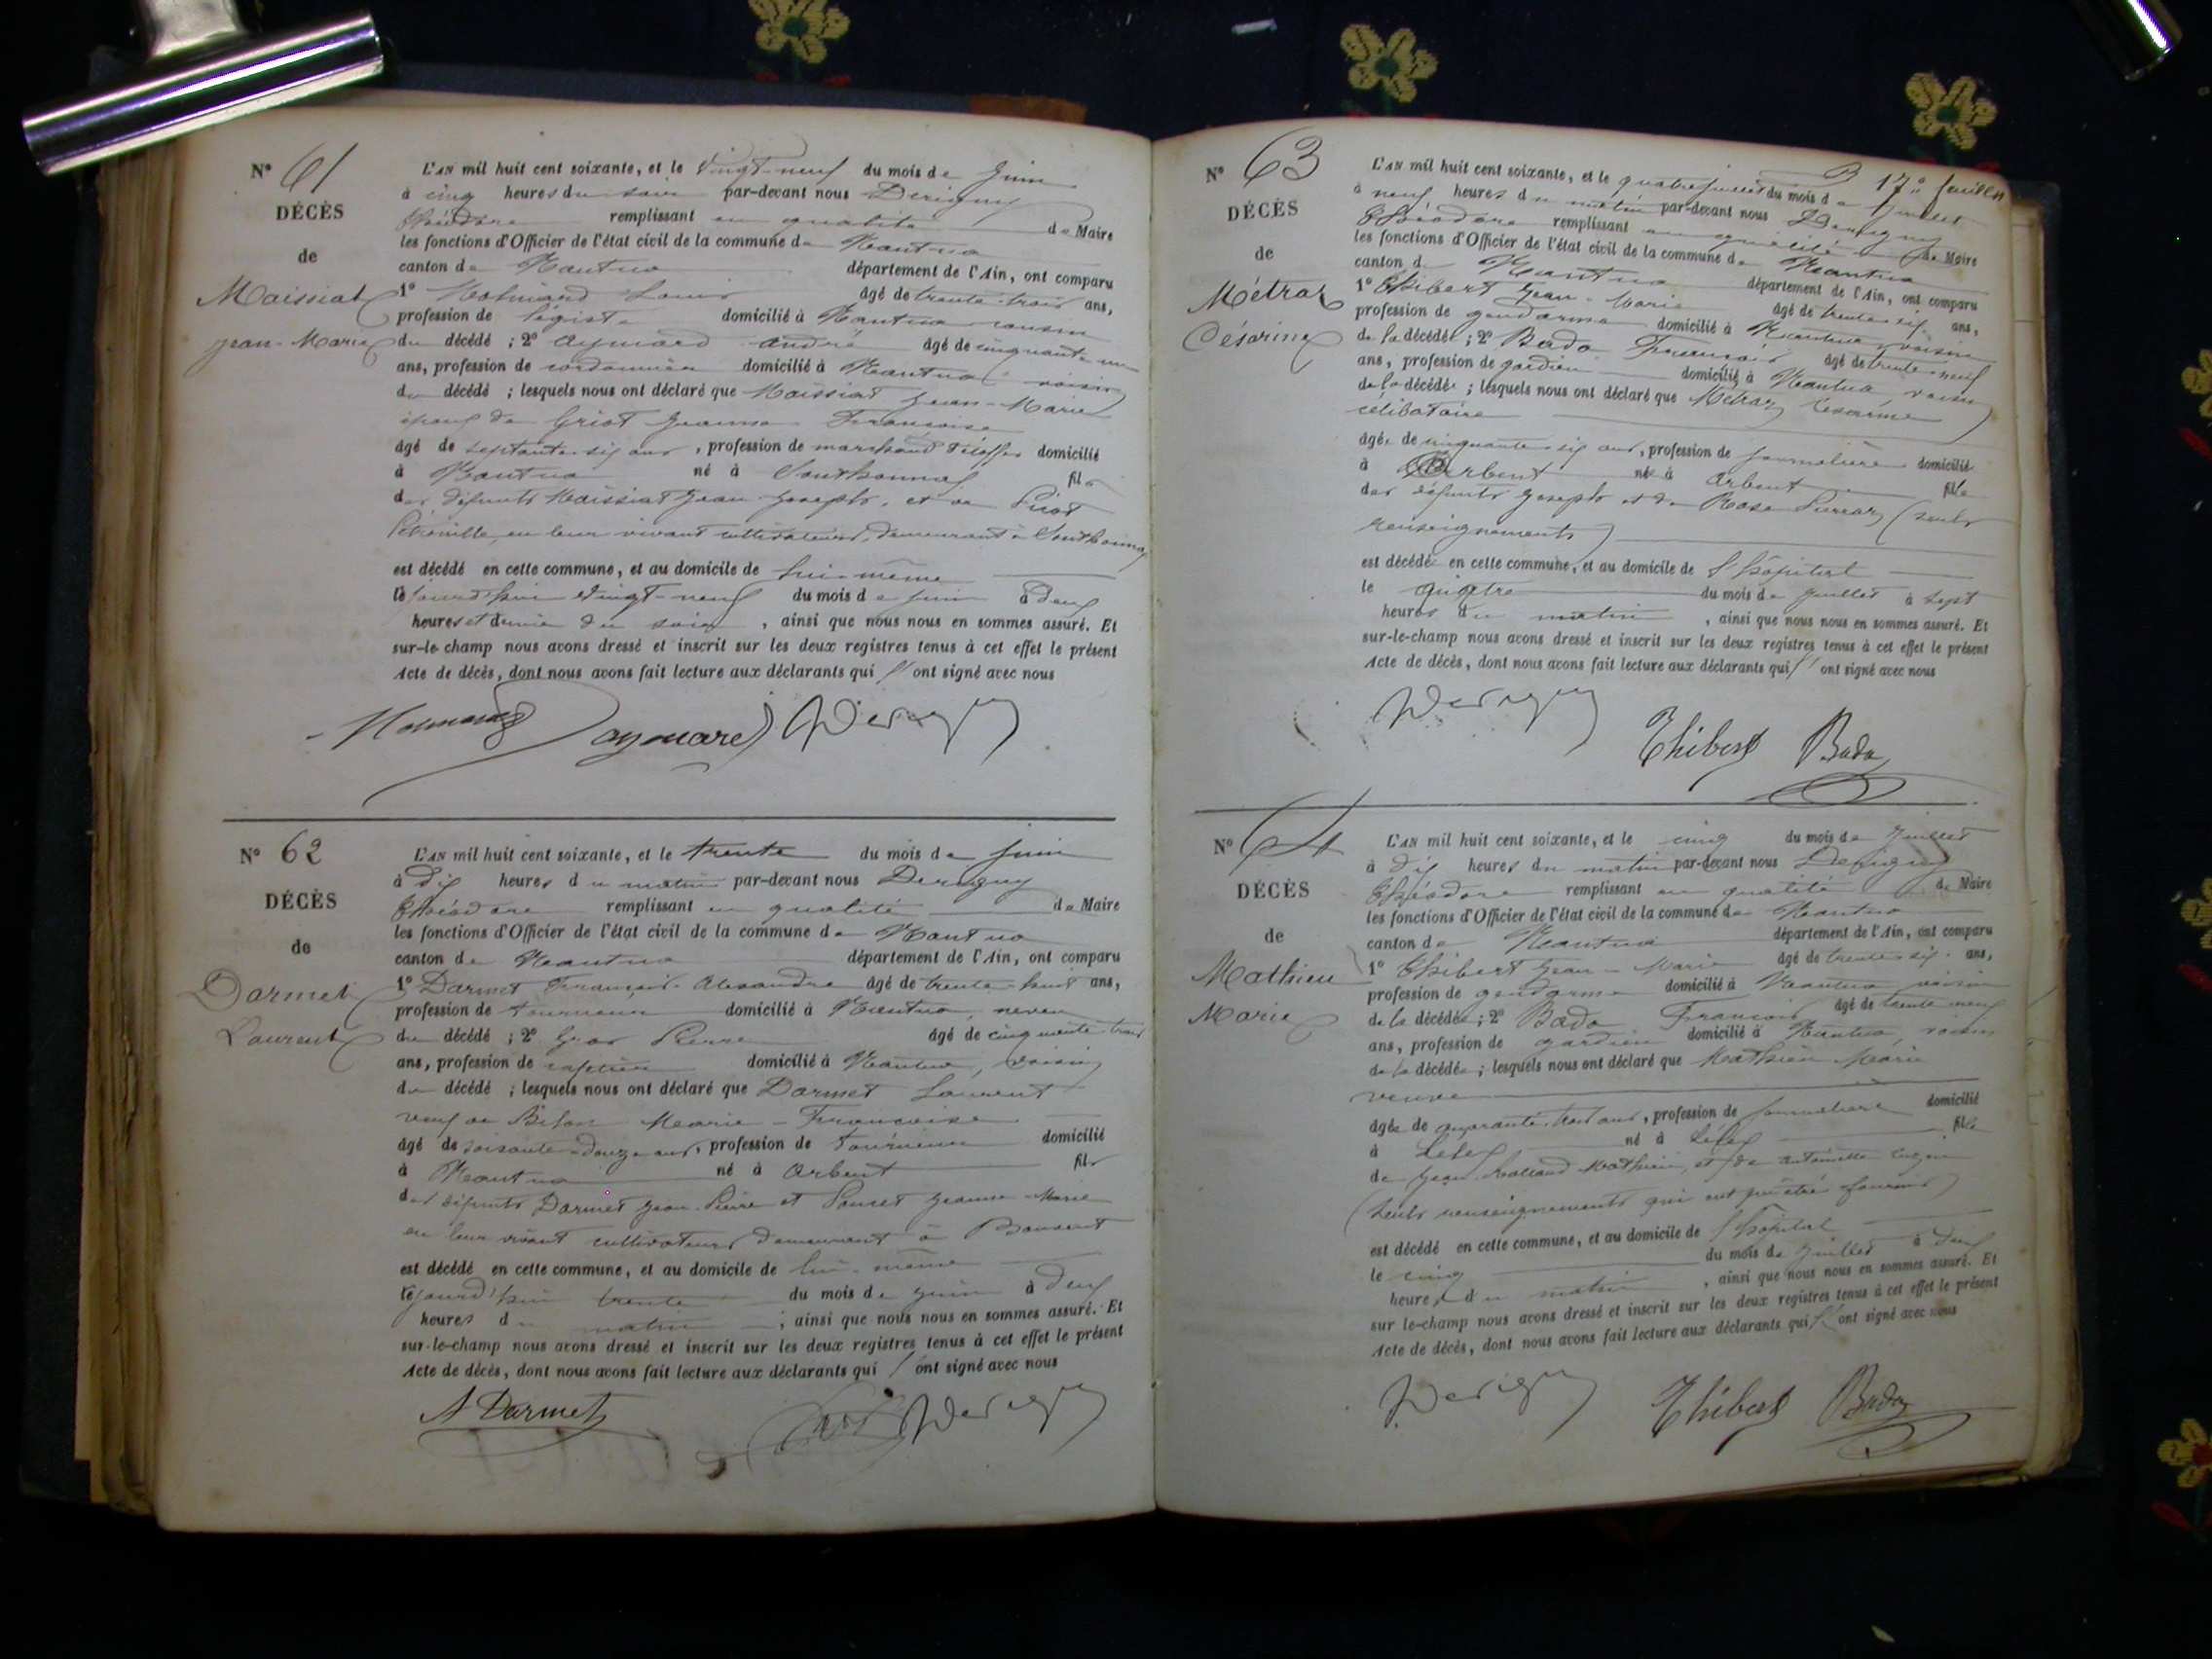 N° 61
DÉCÈS
de
Maissiat
Jean-Marie
L'AN mil huit cent soixante, et le vingt-neuf du mois de Juin
à cinq heures du soir par-devant nous Derigny
Théodore remplissant en qualité de Maire
les fonctions d'Officier de l'état civil de la commune de Nantua
canton de Nantua département de l'Ain, ont comparu
1° Louis âgé de trente-trois ans,
profession de légiste domicilié à Nantua cousin
du décédé ; 2° Aymard André âgé de cinquante-un
ans, profession de cordonnier domicilié à Nantua voisin
du décédé ; lesquels nous ont déclaré que Maissiat Jean-Marie
époux de Griot Jeanne Françoise
âgé de septante-six ans, profession de marchand d'étoffes domicilié
à Nantua né à Sonthonnax fils
des défunts Maissiat Jean-Joseph, et de
Pétronille, en leur vivant cultivateurs, demeurant à Sonthonnax
est décédé en cette commune, et au domicile de lui-même
le jourd'hui vingt-neuf du mois de juin à deux
heures et demie du soir, ainsi que nous nous en sommes assuré. Et
sur-le-champ nous avons dressé et inscrit sur les deux registres tenus à cet effet le présent
Acte de décès, dont nous avons fait lecture aux déclarants qui ont signé avec nous
aymard Derigny
N° 62
DÉCÈS
de
Darmet
Laurent
L'AN mil huit cent soixante, et le trente du mois de juin
à dix heures du matin par-devant nous Derigny
Théodore remplissant en qualité de Maire
les fonctions d'Officier de l'état civil de la commune de Nantua
canton de Nantua département de l'Ain, ont comparu
1° Darmet François-Alexandre âgé de trente-huit ans,
profession de tourneur domicilié à Nantua, neveu
du décédé ; 2° Gros Pierre âgé de cinquante-trois
ans, profession de domicilié à Nantua, voisin
du décédé ; lesquels nous ont déclaré que Darmet Laurent
veuf de Marie-Françoise
âgé de soixante-douze ans, profession de tourneur domicilié
à Nantua né à Arbent fils
des défunts Darmet Jean-Pierre et Poncet Jeanne-Marie
en leur vivant cultivateurs demeurant à
est décédé en cette commune, et au domicile de lui-même
le jourd'hui trente du mois de juin à deux
heures du matin ; ainsi que nous nous en sommes assuré. Et
sur-le-champ nous avons dressé et inscrit sur les deux registres tenus à cet effet le présent
Acte de décès, dont nous avons fait lecture aux déclarants qui ont signé avec nous
A Darmet Gros Derigny
17e feuillet
N° 63
DÉCÈS
de
Métraz
Césarine
L'AN mil huit cent soixante, et le quatre juillet du mois de juillet
à neuf heures du matin par-devant nous Derigny
Théodore remplissant en qualité de Maire
les fonctions d'Officier de l'état civil de la commune de Nantua
canton de Nantua département de l'Ain, ont comparu
1° Thibert Jean-Marie âgé de trente-six ans,
profession de gendarme domicilié à Nantua, voisin
de la décédée ; 2° Bada François âgé de trente-neuf
ans, profession de gardien domicilié à Nantua voisin
de la décédée ; lesquels nous ont déclaré que Métraz Césarine
célibataire
âgée de cinquante-six ans, profession de journalière domicilié
à Arbent né à Arbent fille
des défunts Joseph et de Rose (seuls
renseignements)
est décédée en cette commune, et au domicile de l'hôpital
le quatre du mois de juillet à sept
heures du matin, ainsi que nous nous en sommes assuré. Et
sur-le-champ nous avons dressé et inscrit sur les deux registres tenus à cet effet le présent
Acte de décès, dont nous avons fait lecture aux déclarants qui ont signé avec nous
Derigny
Thibert Bada
N° 64
DÉCÈS
de
Mathieu
Marie
L'AN mil huit cent soixante, et le cinq du mois de juillet
à dix heures du matin par-devant nous Derigny
Théodore remplissant en qualité de Maire
les fonctions d'Officier de l'état civil de la commune de Nantua
canton de Nantua département de l'Ain, ont comparu
1° Thibert Jean-Marie âgé de trente-six ans,
profession de gendarme domicilié à Nantua voisin
de la décédée ; 2° Bada François âgé de trente-neuf
ans, profession de gardien domicilié à Nantua, voisin
de la décédée ; lesquels nous ont déclaré que Mathieu Marie
veuve
âgée de quarante-trois ans, profession de journalière domicilié
à Lélex né à Lélex fille
de Jean Mathieu, et de Antoinette
(seuls renseignements qui ont pu être fournis)
est décédé en cette commune, et au domicile de l'hôpital
le cinq du mois de juillet à deux
heures du matin, ainsi que nous nous en sommes assuré. Et
sur le-champ nous avons dressé et inscrit sur les deux registres tenus à cet effet le présent
Acte de décès, dont nous avons fait lecture aux déclarants qui ont signé avec nous
Derigny Thibert Bada